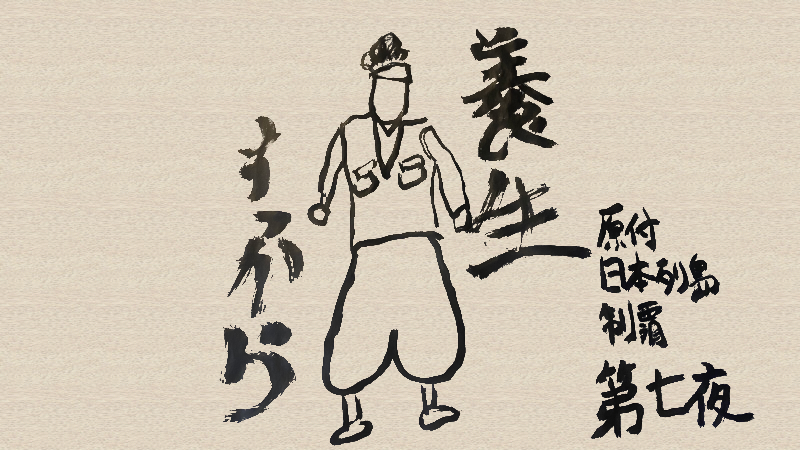 養生
原付
日本列島
制覇
第七夜